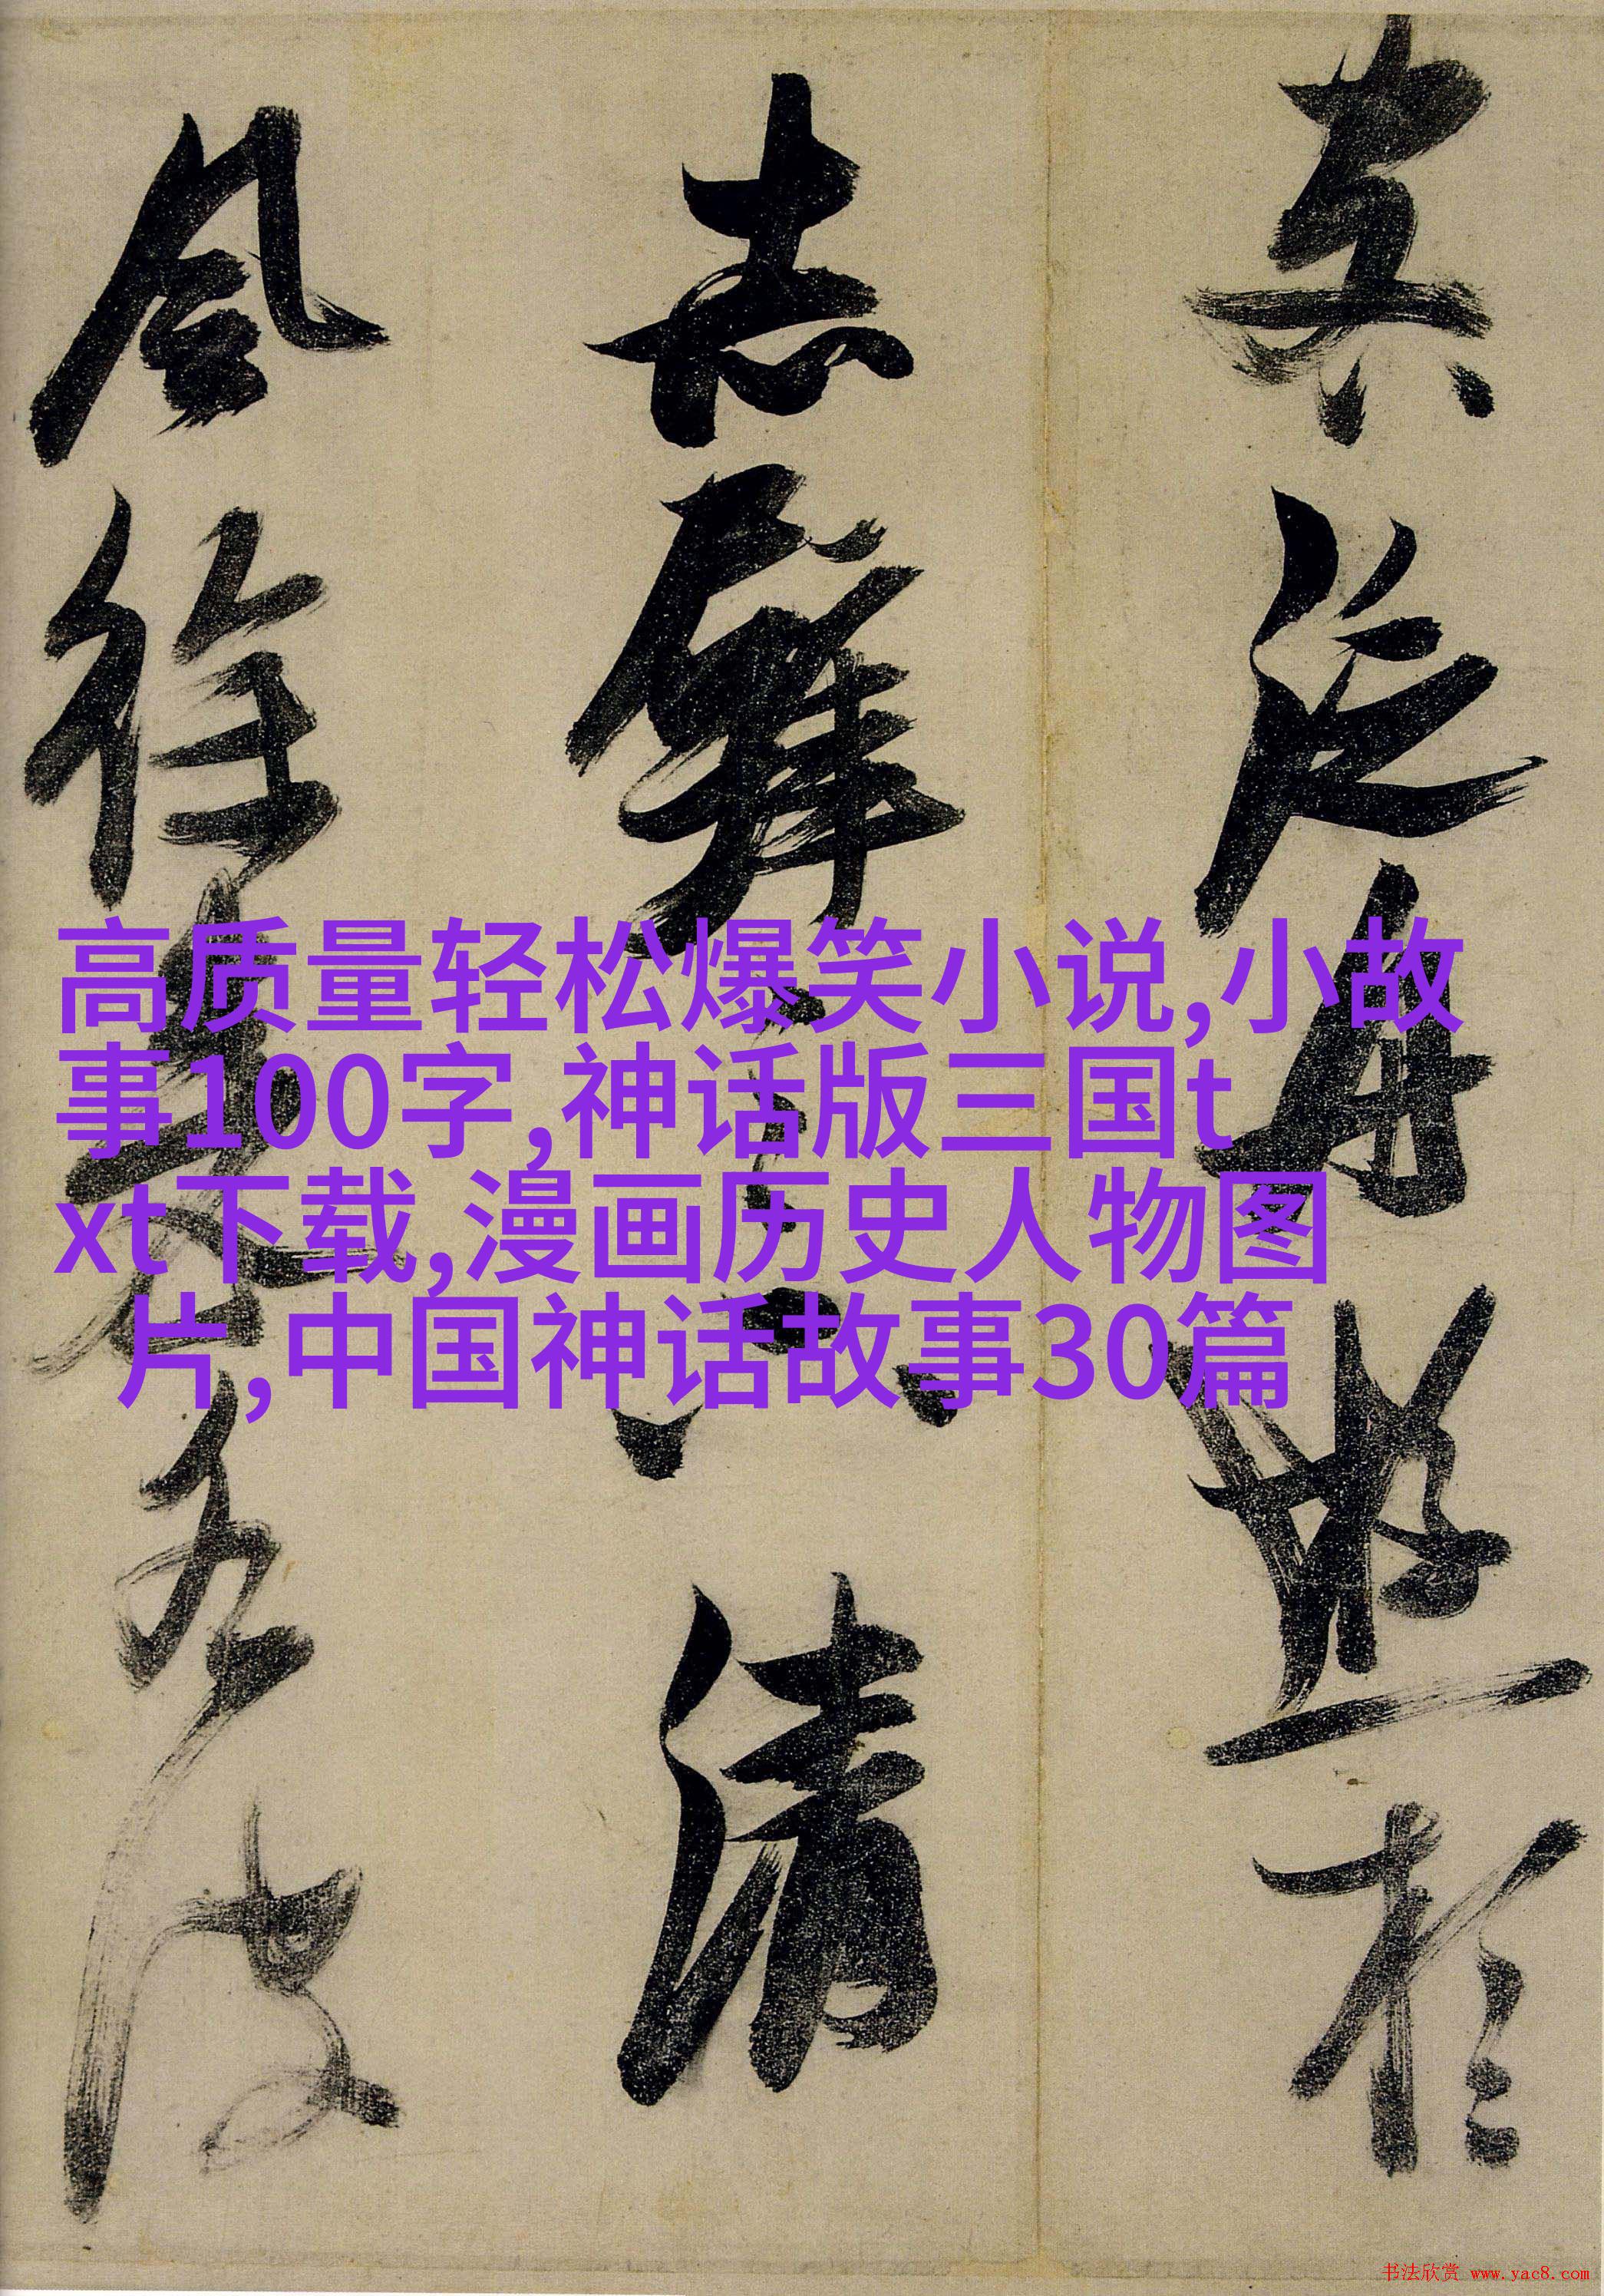 泛舟遊於
赤壁之下清
風徐來水波
高质量轻松爆笑小说,小故
事100字,神话版三国t
xt下载,漫画历史人物图
片,中国神话故事30篇
书法欣赏 www.yac8.com